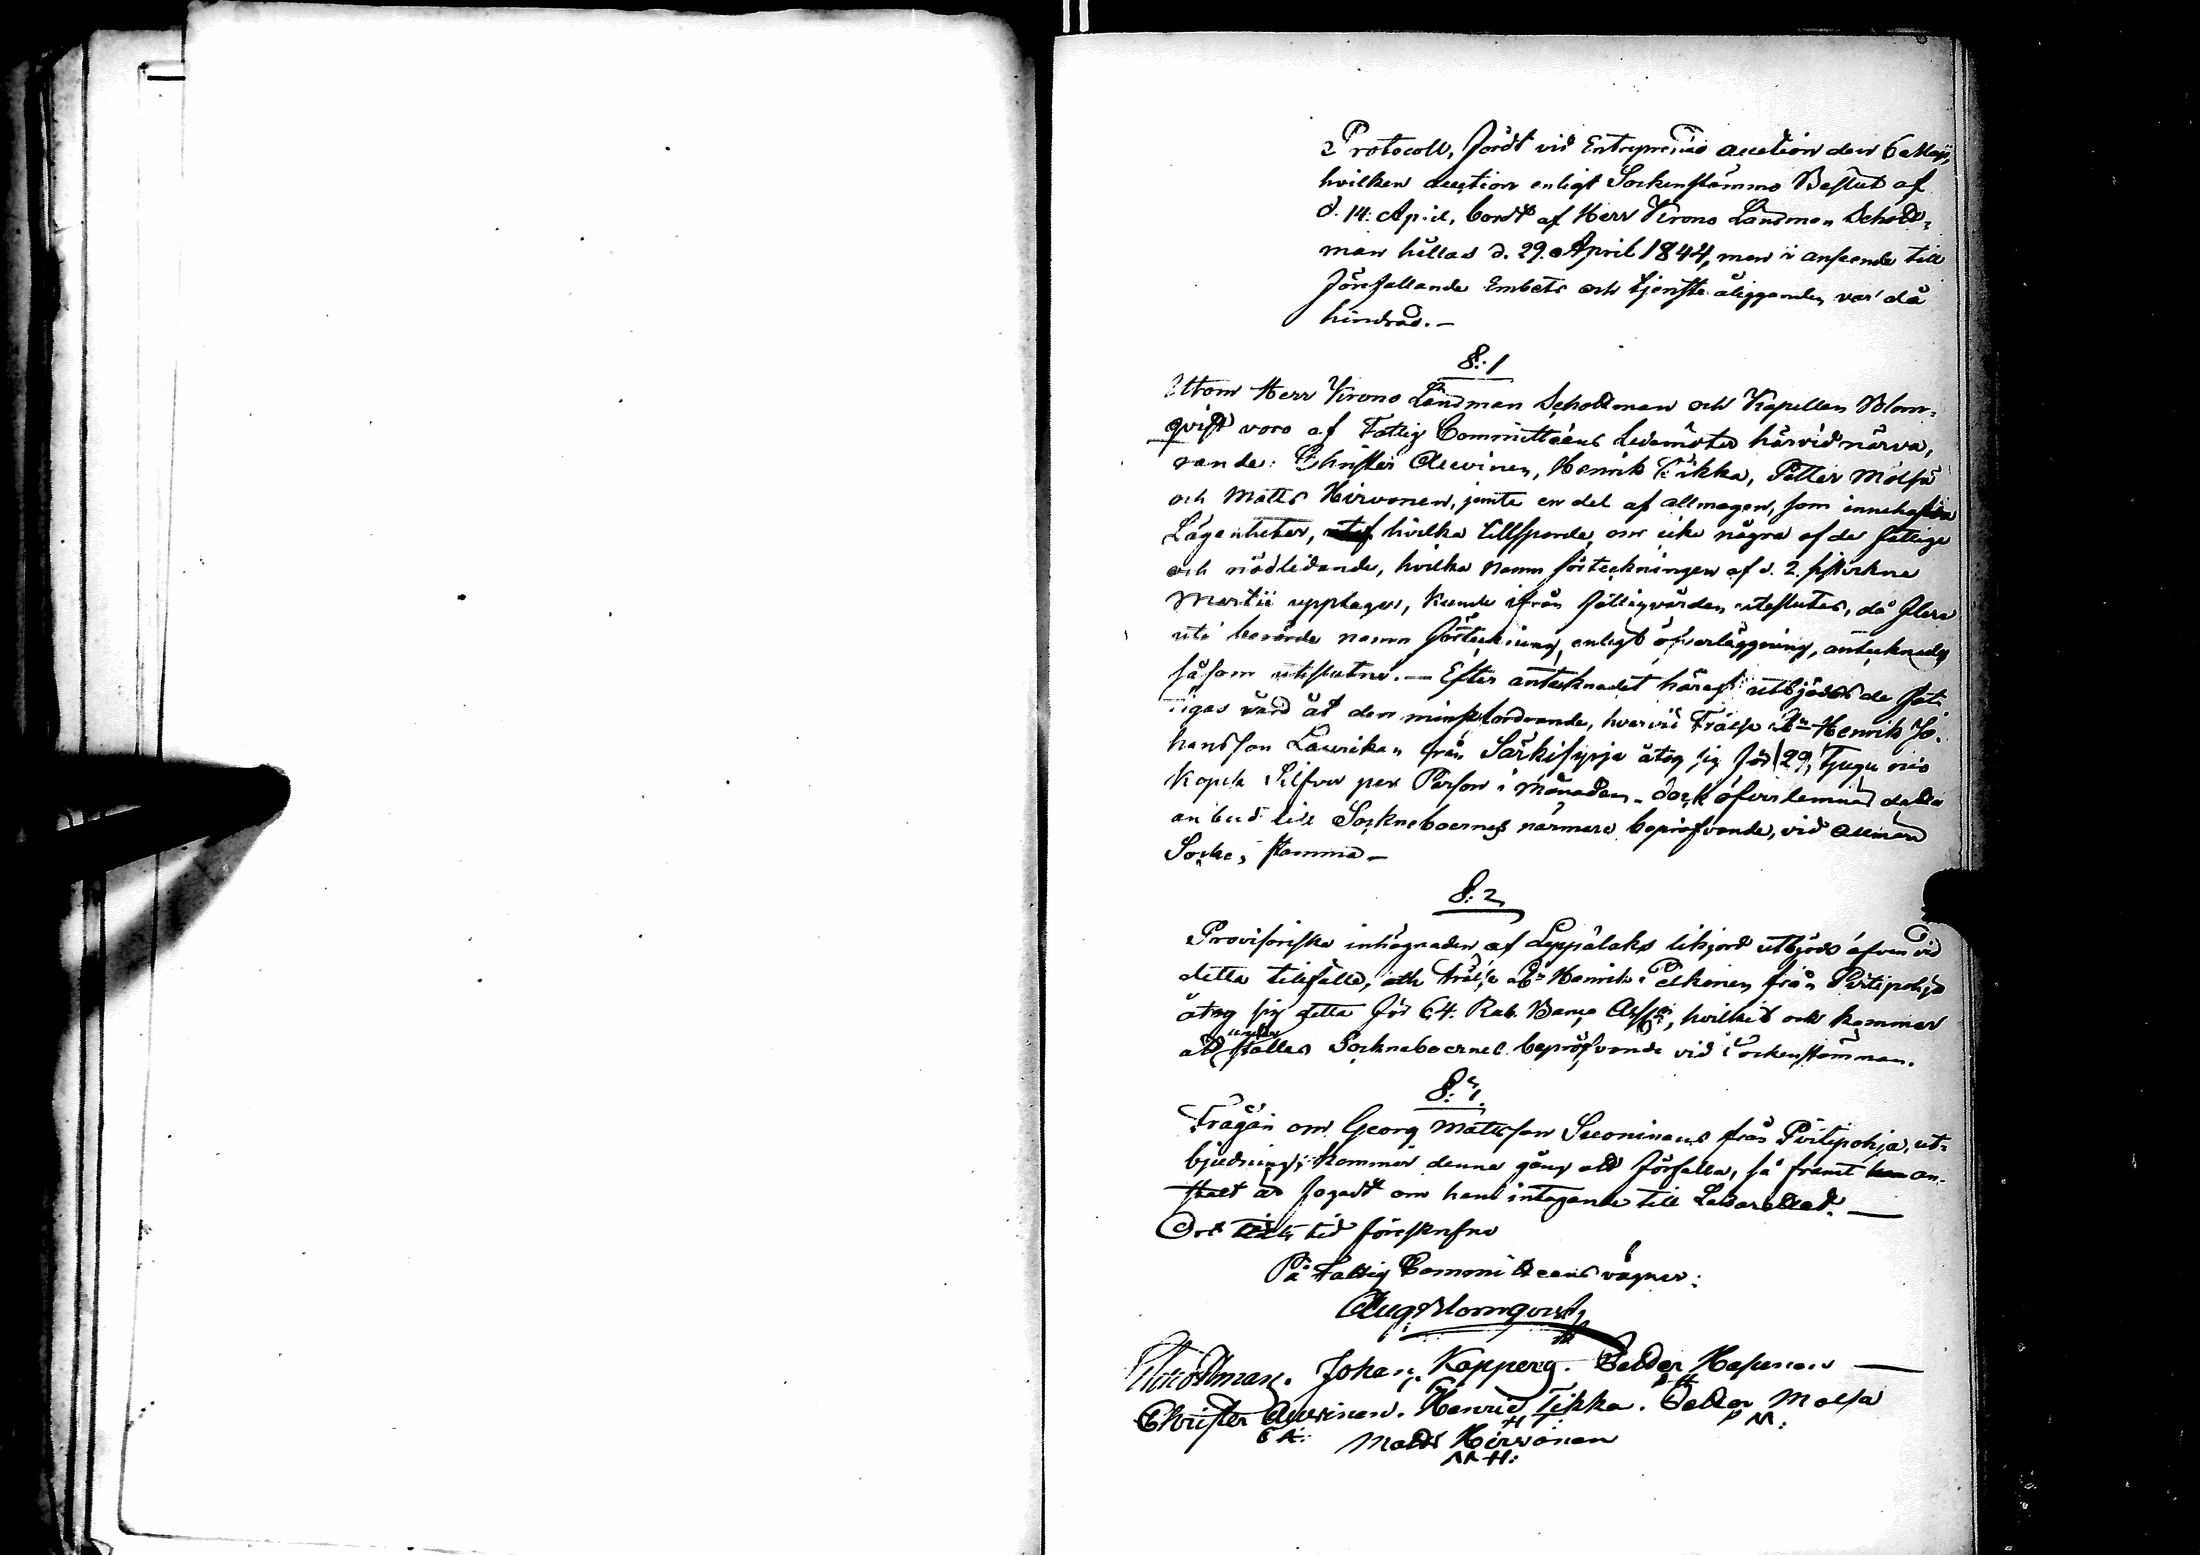 Protocoll, fördt vid Entreprenad auction den 6 Maji,
hvilken auction enligt Sockenstämmo Beslut af
d. 14. April, bordt af Herr Krono Länsman Schodt-
man hållas d. 29. April 1844, men i anseende till
förefallande Embets och tjenste åligganden var då
hindrad. —
§: 1
Utom Herr Krono Länsman Schodtman och Kapellan Blom-
qvist voro af Fattig Committéens Ledamöter härvid närva-
rande: Christer Auvinen, Henrik Tikka, Petter Molsa
och Matts Hirvonen, jemte en del af allmogen, som innehafva
Lägenheter, hvilka tillspordes, om icke några af de fattige
och nödlidande, hvilka namn förteckningen af d. 2.
Martii upptager, kunde ifrån fattigvården uteslutas, då flere
uti berörde namn förteckning, enligt öfverläggning, antecknades
såsom uteslutne. — Efter antecknadet häraf utbjöds de fat-
tigas vård åt den minstfordrande, hvarvid Frälse Bn Henrik Jo-
hansson Laurikan från Särkisyrja åtog sig för 29, Tjugu nio
Kopek Silfver per Person i Månaden, dock öfverlemnad detta
anbud till Sockneboernes närmare bepröfvande, vid Allmän
Socken stämma —
§: 2
Provisoriska inhägnaden af Leppälaks likjord utbjöds äfven vid
detta tillfälle, och Frälse Bn Henrik Pelkonen från Pitipohja
åtog sig detta för 64. Rub. Banco Assig:, hvilket och kommer
att under ställas Sockneboernes bepröfvande vid Sockenstämman.
§: 3.
Frågan om Georg Mattsson Suoninens från Pitipohja, ut-
bjudning, kommer denna gång att förfalla, så framt an-
stalt är fogadt om hans intagande till Lazarettet. —
Ort och tid föreskrefne
På Fattig Committeens vägnar:
Aug. Blomqvist
Schodtman. Johan Kopperg. Petter Hafunen —
Christer Auvinen. Henric Tikka. Petter Molsa
C A: H T P M:
Matts Hirvonen
M H: